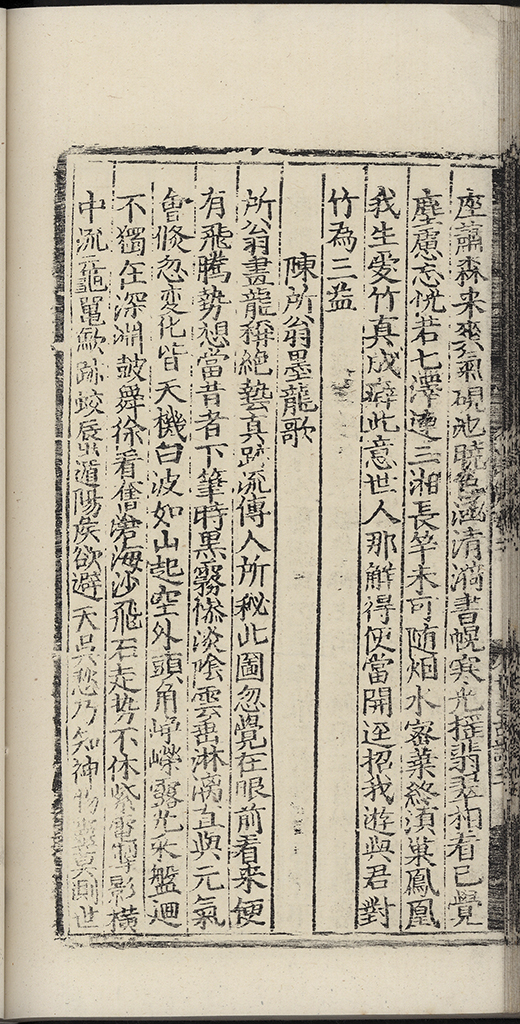 座蕭森來爽氣硯池曉色涵清滴書幌寒光搖翡翠相看已覺
塵慮忘恍若七澤連三湘長竿未可随烟水密葉終須巢鳳凰
我生愛竹真成癖此意世人那解得便當開逕招我游與君對
竹為三益
陳所翁墨龍歌
所翁畫龍稱絶藝真跡流傳人所秘此圖忽覺在眼前看來便
有飛騰勢想當昔者下筆時黒霧慘淡陰雲垂淋漓直與元氣
會倐忽變化皆天機白波如山起空外頭角崢嶸露光水盤廻
不獨在深淵鼓舞徐看奮滄海沙飛石走勢不休紫電影橫
中流黿鼉歛跡蛟蜃遁陽侯欲避天吳愁乃知神物莫測世